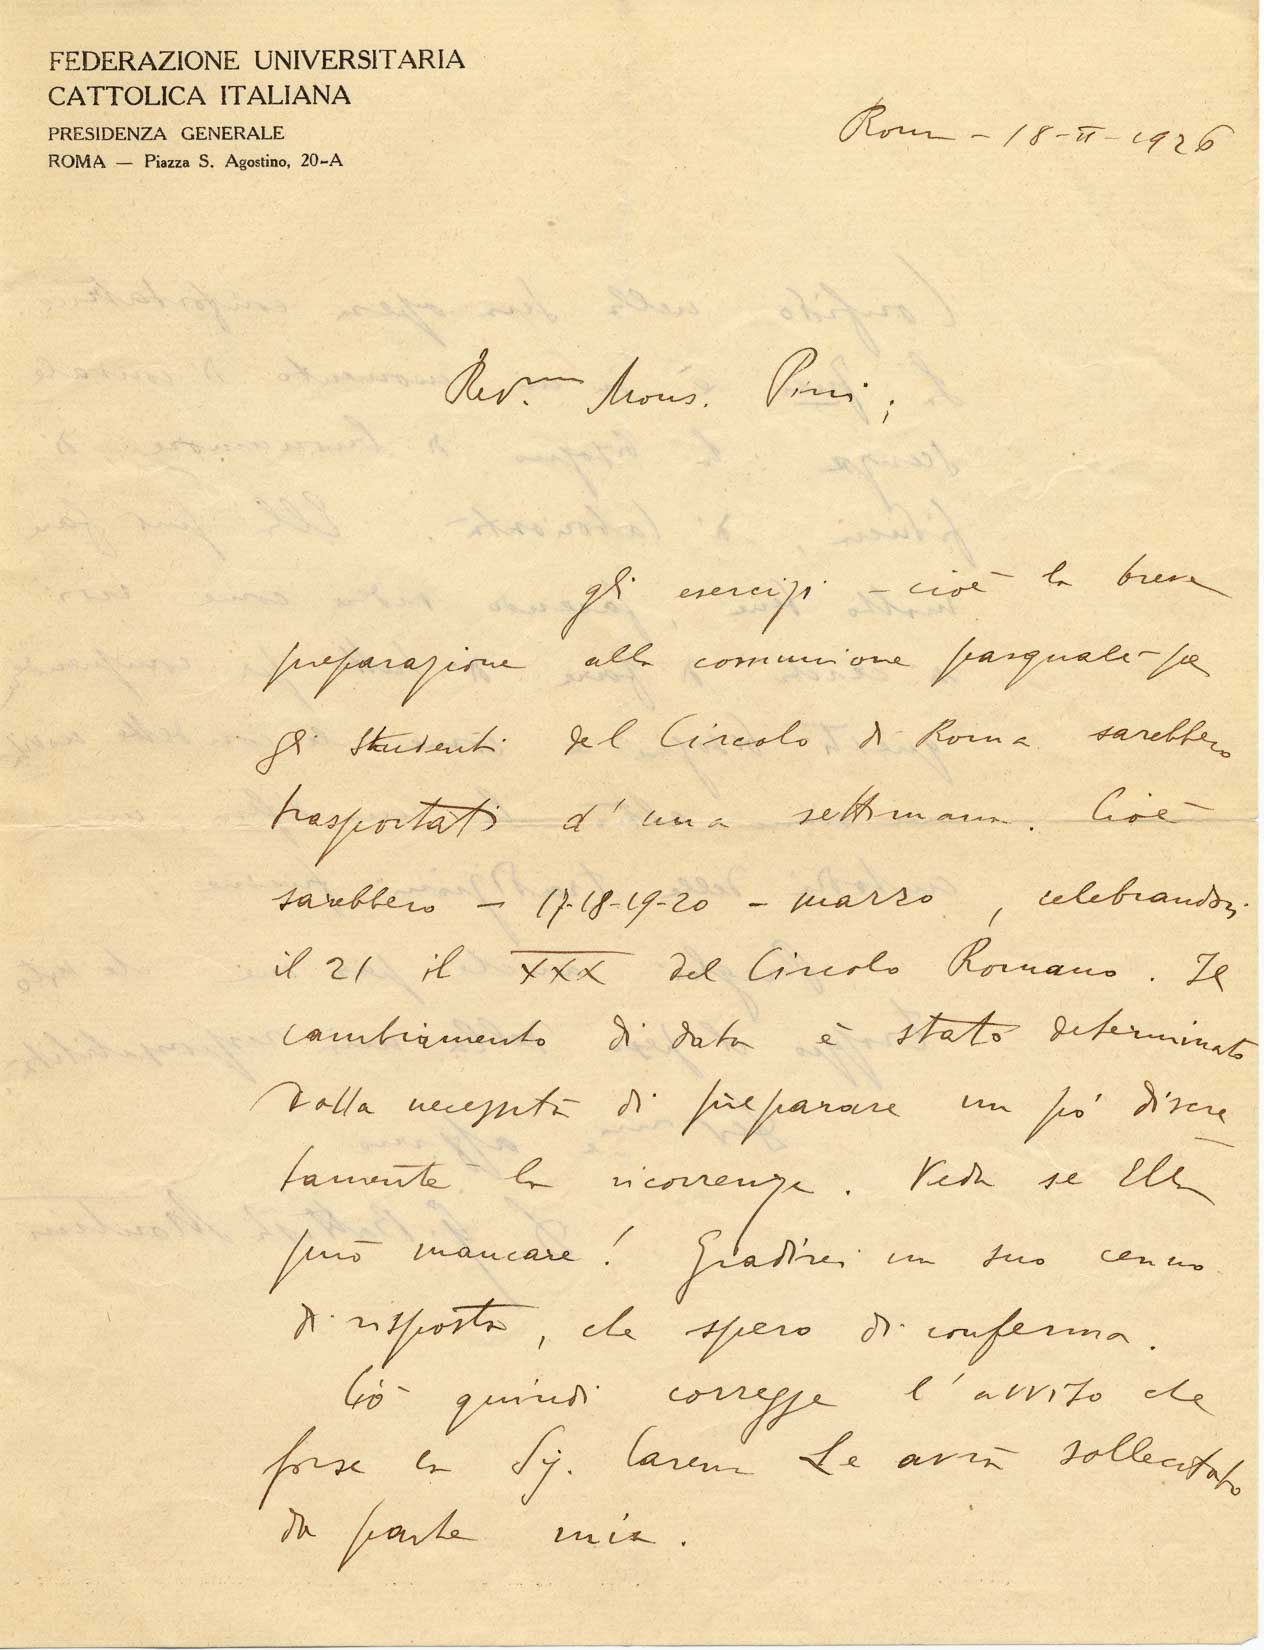 FEDERAZIONE UNIVERSITARIA
CATTOLICA ITALIANA
PRESIDENZA GENERALE
ROMA — Piazza S. Agostino, 20-A
Roma - 18-II-1926
Rev.mo Mons. Pini;
gli esercizi - cioè la breve
preparazione alla comunione pasquale - per
gli studenti del Circolo di Roma sarebbero
trasportati d'una settimana. Cioè
sarebbero - 17-18-19-20 - marzo, celebrandosi
il 21 il XXX del Circolo Romano. Il
cambiamento di data è stato determinato
dalla necessità di preparare un pó discre
tamente la ricorrenza. Veda se Ella
può mancare! Gradirei un suo cenno
di risposta, che spero di conferma.
Ciò quindi corregge l'avviso che
forse la Sig. Le avrà sollecitato
da parte mia.